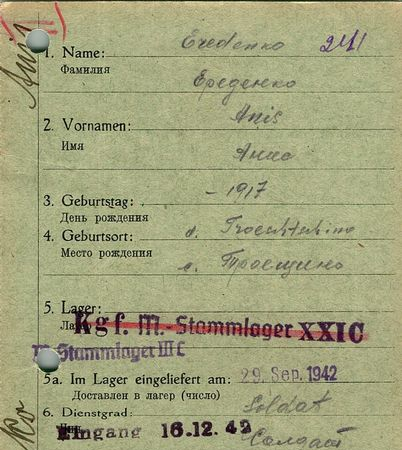 1. Name: Eredenko 241
Фамилия Ереденко
2. Vornamen: Anis
Имя Анис
3. Geburtstag: - 1917
День рождения
4. Geburtsort: d. Troeschtschino
Место рождения с. Троещино
5. Lager:
Kgf. M.-Stammlager XXIC
M-Stammlager III C
5a. Im Lager eingeliefert am: 29. Sep. 1942
Доставлен в лагер (число)
6. Dienstgrad: Soldat
Eingang 16.12.42 Солдат